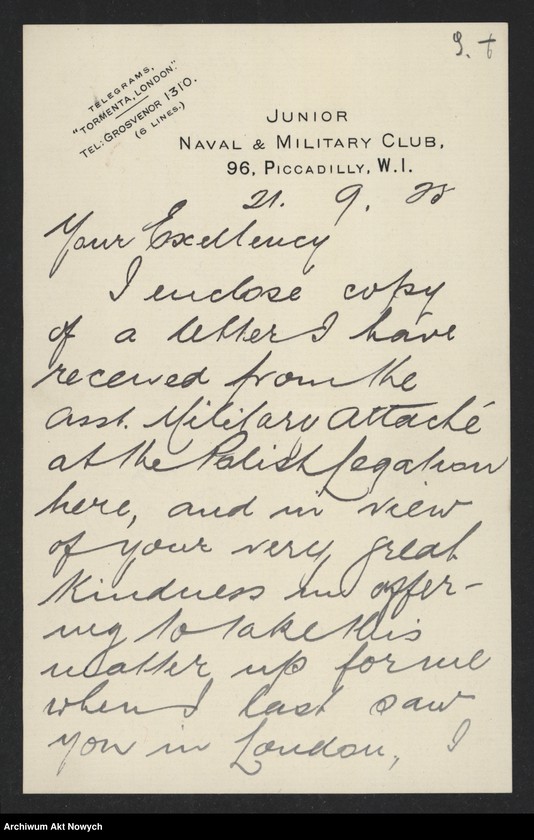 TELEGRAMS,
"TORMENTA, LONDON."
TEL: GROSVENOR 1310.
(6 LINES.)
JUNIOR
NAVAL & MILITARY CLUB,
96, PICCADILLY, W.1.
21. 9.
Your Excellency
I enclose copy
of a letter I have
received from the
asst. Military Attaché
at the Polish Legation
here, and in view
of your very great
kindness in offer-
ing to take this
matter up for me
when I last saw
you in London, I
Archiwum Akt Nowych